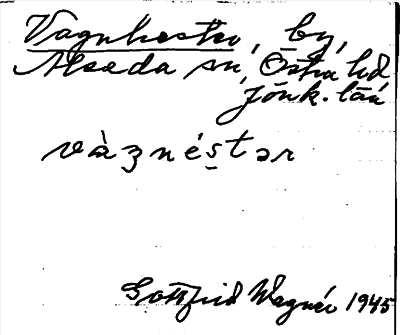 Vagnhester, by,
Alseda sn, Östra hd,
Jönk. län
vàʒnéṣtər
Gottfrid Wagnér 1945